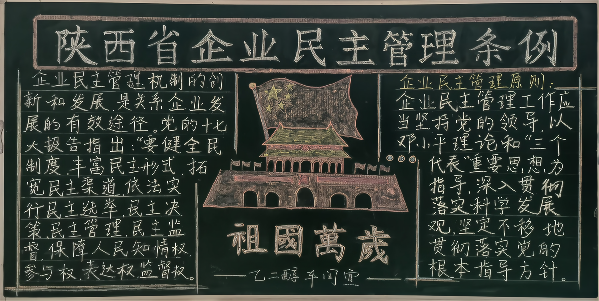 陕西省企业民主管理条例
企业民主管理机制的创
新和发展,是关系企业发
展的有效途径。党的十七
大报告指出:“要健全民
制度,丰富民主形式,拓
宽民主渠道,依法实
行民主选举,民主决
策,民主管理,民主监
督,保障人民知情权,
参与权,表达权,监督权。
祖國萬歲
乙二醇车间宣
企业民主管理原则:
企业民主管理工作应
当坚持党的领导,以
邓小平理论和“三个
代表”重要思想,为
指导,深入贯彻
落实科学发展
观,坚定不移地
贯彻落实党的
根本指导方针。